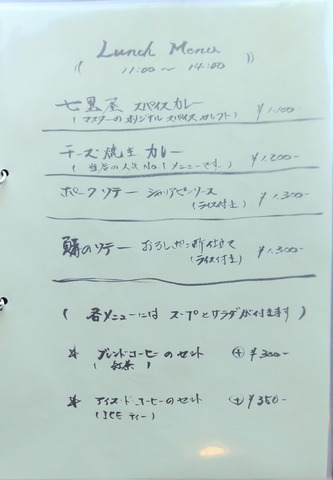 Lunch Menu
11:00～14:00
七黒屋 スパイスカレー ¥1.100-
(マスターのオリジナル スパイス カレー)
チーズ焼きカレー ¥1.200-
(当店の人気No.1メニューです。)
ポークソテー シャリアピンソース ¥1.300-
(ライス付き)
鰆のソテー おろしポン酢仕立て ¥1.300-
(ライス付き)
(各メニューには スープとサラダが付きます)
★ ブレンドコーヒーのセット ⊕¥300-
(紅茶)
★ アイスコーヒーのセット ⊕¥350-
(ICE ティー)